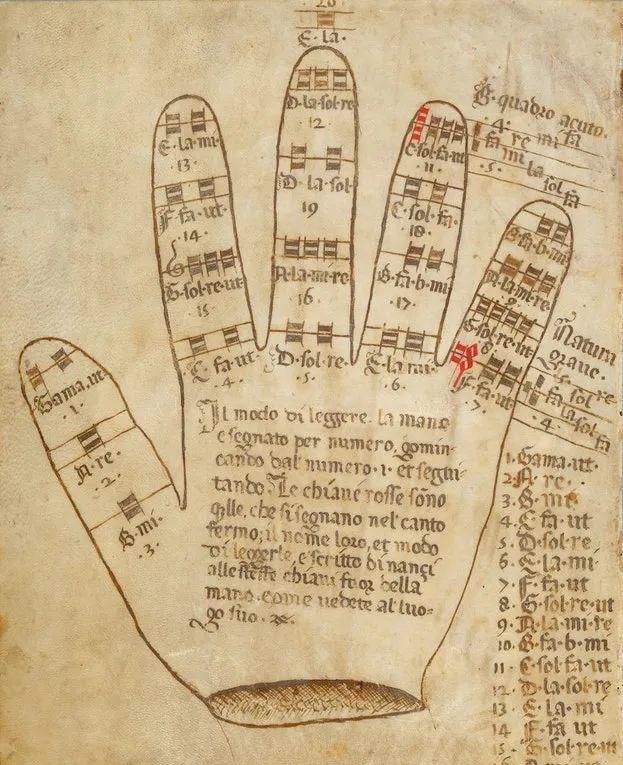 20
E·la·
D·la·sol·re
12
D·la·sol·
19
A·la·mi·re
16
D·sol·re·
5
E·la·mi·
13
F·fa·ut·
14
G·sol·re·ut
15
C·fa·ut·
4
C·sol·fa·ut
11
C·sol·fa·
18
B·fa·b·mi
17
E·la·mi·
6
B·quadro acuto.
4· re mi fa
fa mi la sol fa
5
B·fa·b·mi
A·la·mi·re
9
G·sol·re·ut
8
F·fa·ut
7
Natura
grave.
5 sol re
fa la sol fa
4
Gama·ut·
1
A·re·
2
B·mi·
3
Il modo di leggere· la mano
e segnato per numero, comin-
cando dal numero·1· et segui-
tando· Le chiavi rosse sono
q̃lle, che si segnano nel canto
fermo; il nome loro, et modo
di leggerle, e scritto di nanci
alle stesse chiavi fuor della
mano·come vedete al luo-
go suo·
1·Gama·ut·
2·A·re·
3·B·mi·
4·C·fa·ut
5·D·sol·re
6·E·la·mi
7·F·fa·ut
8·G·sol·re·ut
9·A·la·mi·re
10·B·fa·b·mi
11·C·sol·fa·ut
12·D·la·sol·re
13·E·la·mi
14·F·fa ut
15·G·sol·re·ut